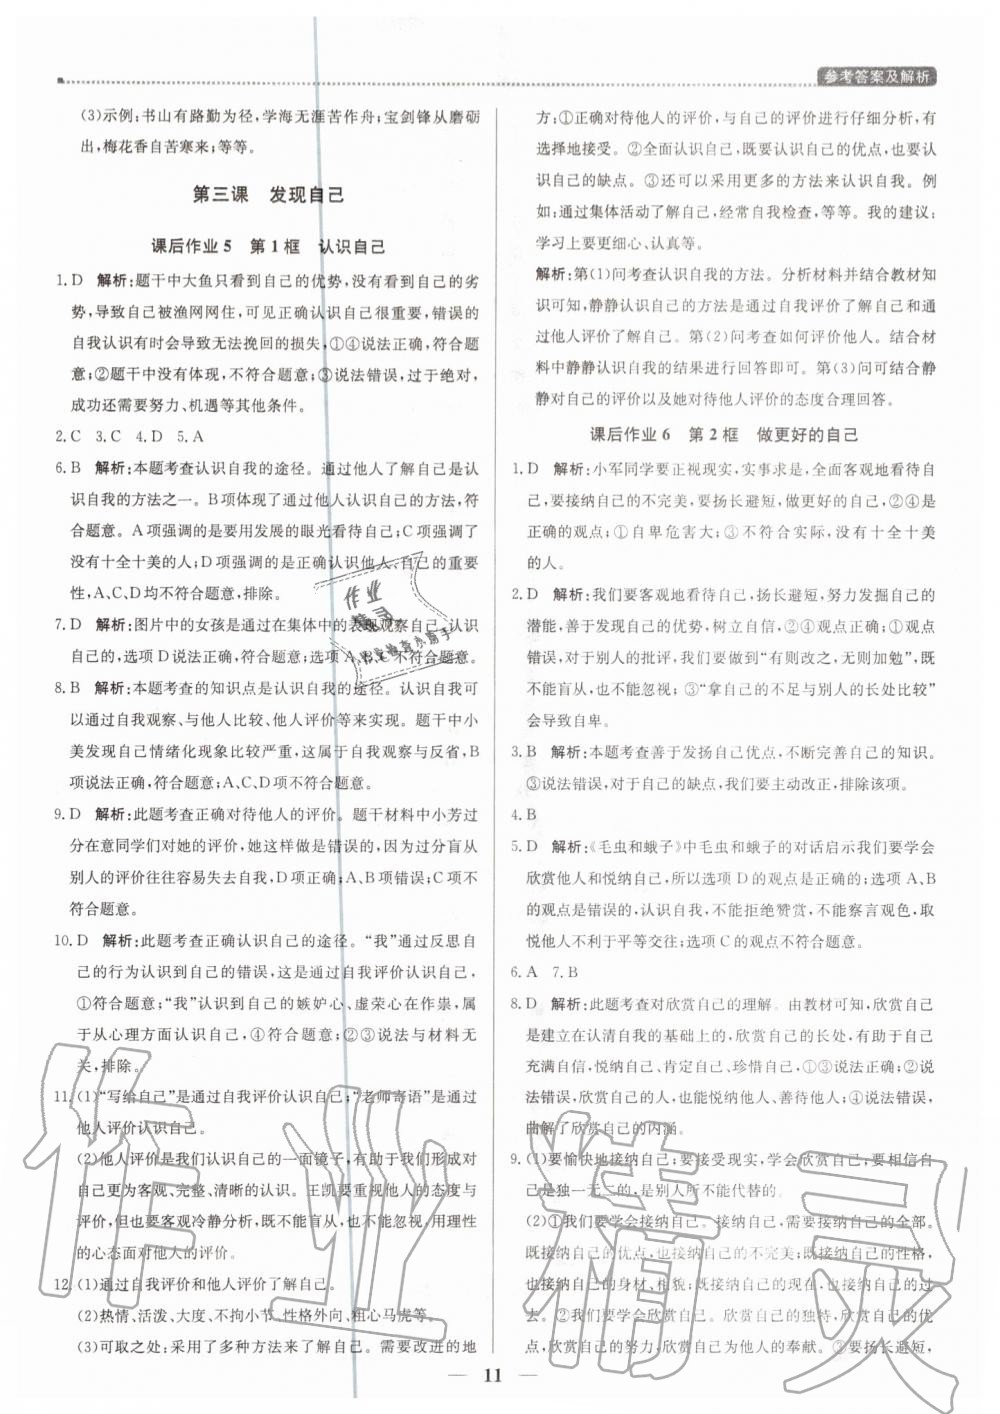 参考答案及解析
(3)示例:书山有路勤为径,学海无涯苦作舟;宝剑锋从磨砺
出,梅花香自苦寒来;等等。
第三课 发现自己
课后作业5 第1框 认识自己
1. D 解析:题干中大鱼只看到自己的优势,没有看到自己的劣
势,导致自己被渔网网住,可见正确认识自己很重要,错误的
自我认识有时会导致无法挽回的损失,①④说法正确,符合题
意;②题干中没有体现,不符合题意;③说法错误,过于绝对,
成功还需要努力、机遇等其他条件。
2. C 3. C 4. D 5. A
6. B 解析:本题考查认识自我的途径。通过他人了解自己是认
识自我的方法之一。B项体现了通过他人认识自己的方法,符
合题意。A项强调的是要用发展的眼光看待自己;C项强调了
没有十全十美的人;D项强调的是正确认识他人、自己的重要
性,A、C、D均不符合题意,排除。
7. D 解析:图片中的女孩是通过在集体中的表现观察自己、认识
自己的,选项D说法正确,符合题意;选项A、B、C不符合题意。
8. B 解析:本题考查的知识点是认识自我的途径。认识自我可
以通过自我观察、与他人比较、他人评价等来实现。题干中小
美发现自己情绪化现象比较严重,这属于自我观察与反省,B
项说法正确,符合题意;A、C、D三项不符合题意。
9. D 解析:此题考查正确对待他人的评价。题干材料中小芳过
分在意同学们对她的评价,她这样做是错误的,因为过分盲从
别人的评价往往容易失去自我,D项正确;A、B项错误;C项
不符合题意。
10. D 解析:此题考查正确认识自己的途径。“我”通过反思自
己的行为认识到自己的错误,这是通过自我评价认识自己,
①符合题意;“我”认识到自己的嫉妒心、虚荣心在作祟,属
于从心理方面认识自己,④符合题意;②③说法与材料无
关,排除。
11. (1)“写给自己”是通过自我评价认识自己;“老师寄语”是通过
他人评价认识自己。
(2)他人评价是我们认识自己的一面镜子,有助于我们形成对
自己更为客观、完整、清晰的认识。王凯要重视他人的态度与
评价,但要客观冷静分析,既不能盲从,也不能忽视,用理性
的心态面对他人的评价。
12. (1)通过自我评价和他人评价了解自己。
(2)热情、活泼、大度、不拘小节、性格外向、粗心马虎等。
(3)可取之处:采用了多种方法来了解自己。需要改进的地
方:①正确对待他人的评价,与自己的评价进行仔细分析,有
选择地接受。②全面认识自己,既要认识自己的优点,也要认
识自己的缺点。③还可以采用更多的方法来认识自我。例
如:通过集体活动了解自己,经常自我检查,等等。我的建议:
学习上要更细心、认真等。
解析:第(1)问考查认识自我的方法。分析材料并结合教材知
识可知,静静认识自己的方法是通过自我评价了解自己和通
过他人评价了解自己。第(2)问考查如何评价他人。结合材
料中静静认识自我的结果进行回答即可。第(3)问可结合静
静对自己的评价以及她对待他人评价的态度合理回答。
课后作业6 第2框 做更好的自己
1. D 解析:小军同学要正视现实,实事求是,全面客观地看待自
己,要接纳自己的不完美,要扬长避短,做更好的自己,②④是
正确的观点;①自卑危害大;③不符合实际,没有十全十美
的人。
2. D 解析:我们要客观地看待自己,扬长避短,努力发掘自己的
潜能,善于发现自己的优势,树立自信,②④观点正确;①观点
错误,对于别人的批评,我们要做到“有则改之,无则加勉”,既
不能盲从,也不能忽视;③“拿自己的不足与别人的长处比较”
会导致自卑。
3. B 解析:本题考查善于发扬自己优点,不断完善自己的知识。
③说法错误,对于自己的缺点,我们要主动改正,排除该项。
4. B
5. D 解析:《毛虫和蛾子》中毛虫和蛾子的对话启示我们要学会
欣赏他人和悦纳自己,所以选项D的观点是正确的;选项A、B
的观点是错误的,认识自我,不能拒绝赞赏,不能察言观色,取
悦他人不利于平等交往;选项C的观点不符合题意。
6. A 7. B
8. D 解析:此题考查对欣赏自己的理解。由教材可知,欣赏自己
是建立在认清自我的基础上的,欣赏自己的长处,有助于自己
充满自信,悦纳自己、肯定自己、珍惜自己,①③说法正确;②说
法错误,欣赏自己的人,也能悦纳他人、善待他人;④说法错误,
曲解了欣赏自己的内涵。
9. (1)要愉快地接纳自己,要接受现实,学会欣赏自己,相信自
己是独一无二的,是别人所不能代替的。
(2)①我们要学会接纳自己。接纳自己,需要接纳自己的全部。
既接纳自己的优点,也接纳自己的不完美;既接纳自己的性格,
也接纳自己的身材、相貌;既接纳自己的现在,也接纳自己的过
往。②我们要学会欣赏自己。欣赏自己的独特,欣赏自己的优
点,欣赏自己的努力,欣赏自己为他人的奉献。③要扬长避短,
11
作业精灵
作业
精灵